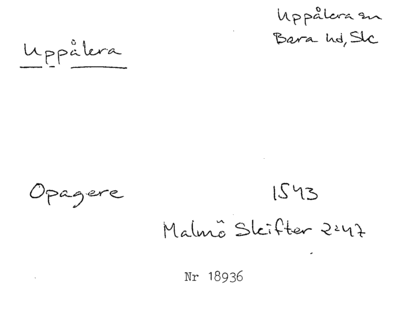 Uppåkra
Uppåkra sn
Bara hd, Sk
Opagere 1543
Malmö Skifter 2:47
Nr 18936